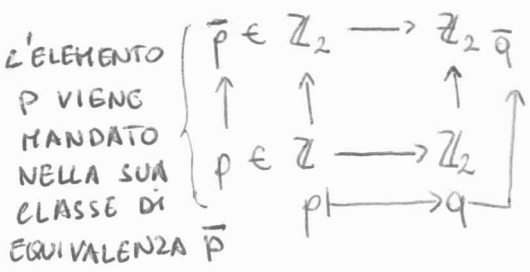 L'ELEMENTO
P VIENE
MANDATO
NELLA SUA
CLASSE DI
EQUIVALENZA p̄
p̄ ∈ ℤ₂ → ℤ₂ q̄
↑ ↑ ↑
p ∈ ℤ → ℤ₂
p ↦ q